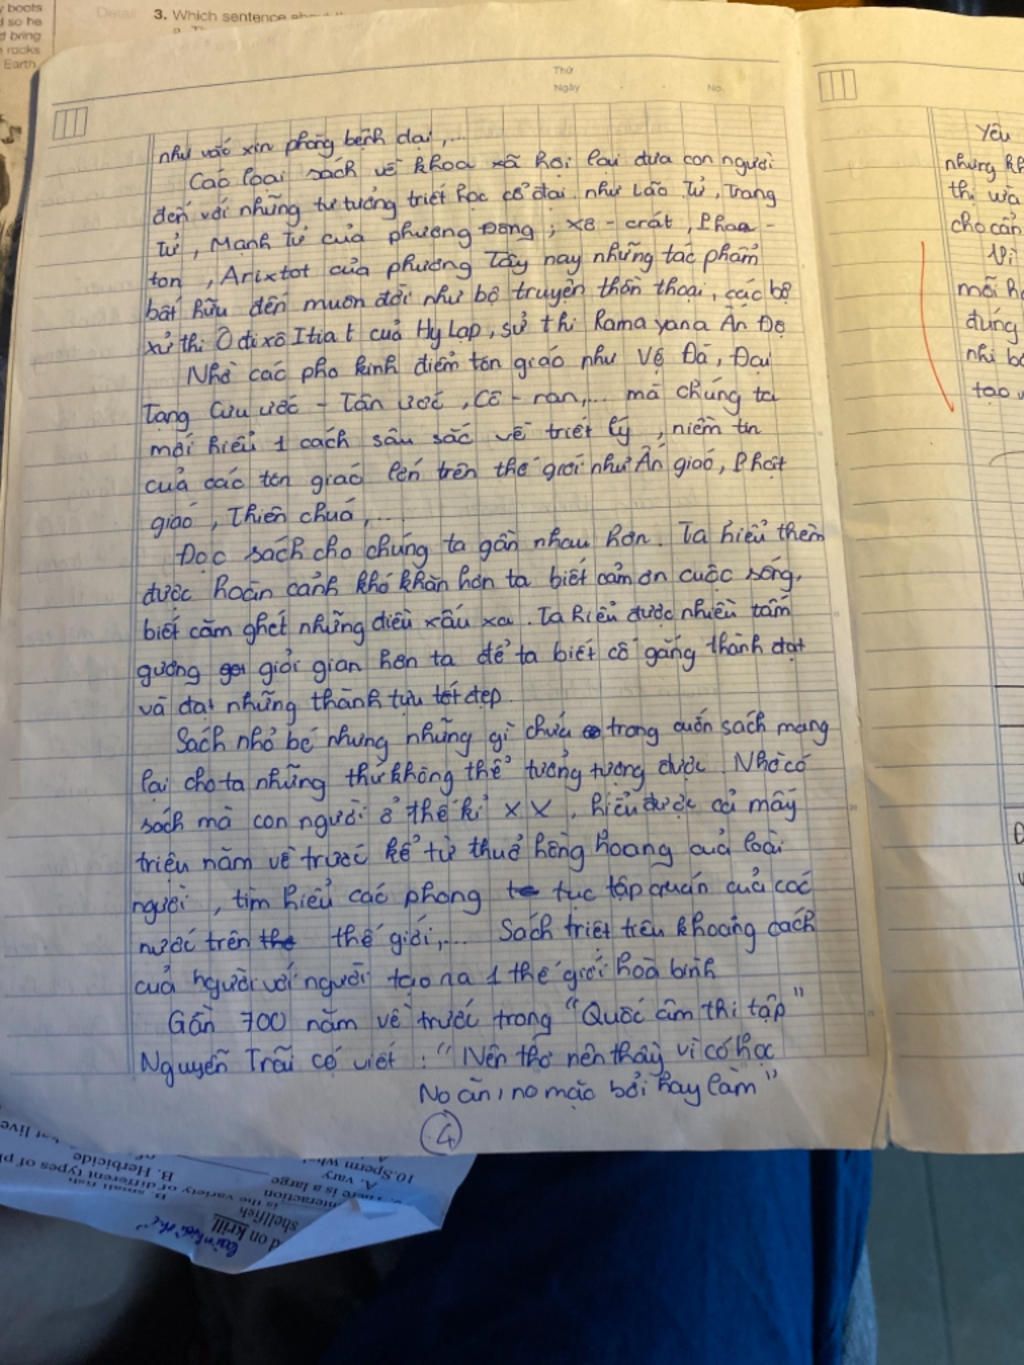 y boots
d so he
d bring
rocks
Earth
3. Which sentence
Thứ
Ngày
No.
như vắc xin phòng bệnh dại,...
Các loại sách về khoa xã hội lại đưa con người
đến với những tư tưởng triết học cổ đại như Lão Tử, Trang
Tử, Mạnh Tử của phương Đông; xô-crát, Phoa-
ton, Arixtot của phương Tây hay những tác phẩm
bất hữu đến muôn đời như bộ truyện thần thoại, các bộ
xử thi Ô đi xô Itiat của Hy Lạp, sử thi Rama yana Ấn Độ
Nhờ các pho kinh điểm tôn giáo như Vệ Đà, Đại
Tạng Cựu ước - Tân ước, Cô-ran,... mà chúng ta
mới hiểu 1 cách sâu sắc về triết lý, niềm tin
của các tôn giáo lớn trên thế giới như Ấn giáo, Phật
giáo, Thiên chúa,...
Đọc sách cho chúng ta gần nhau hơn. Ta hiểu thêm
được hoàn cảnh khó khăn hơn ta biết cảm ơn cuộc sống,
biết căm ghét những điều xấu xa. Ta hiểu được nhiều tấm
gương giỏi gian hơn ta để ta biết cố gắng thành đạt
và đạt những thành tựu tốt đẹp.
Sách nhỏ bé nhưng những gì chứa trong cuốn sách mang
lại cho ta những thứ không thể tưởng tượng được. Nhờ có
sách mà con người ở thế kỉ XX, hiểu được cả mấy
triệu năm về trước kể từ thuở hồng hoang của loài
người, tìm hiểu các phong tục tập quán của các
nước trên thế giới,... Sách triệt tiêu khoảng cách
của người với người tạo ra 1 thế giới hoà bình
Gần 700 năm về trước trong "Quốc âm thi tập"
Nguyễn Trãi có viết: "Nên thợ nên thầy vì có học
No ăn, no mặc bởi hay làm"
4
Yêu
nhưng kh
thị
cho cần
Vì
mỗi
đứng
nhi
tạo
10. Sperm
A. vary
B. Herbicide
There is a large
is the variety of different types of pl
interaction
B. small fish
shellfish
d on krill